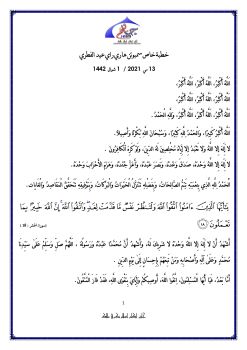 خطبة خاص سمبوتن هاري راي عيد الفطري
13 مي 2021 / 1 شوال 1442
اللهُ أَكْبَرُ، اللهُ أَكْبَرُ، اللهُ أَكْبَرُ،
اللهُ أَكْبَرُ، اللهُ أَكْبَرُ، اللهُ أَكْبَرُ،
اللهُ أَكْبَرُ، اللهُ أَكْبَرُ، اللهُ أَكْبَرُ، وَلِلَّهِ الْحَمْدُ.
اللهُ أَكْبَرُ كَبِيْرًا، وَالْحَمْدُ لِلَّهِ كَثِيْرًا، وَسُبْحَانَ اللهِ بُكْرَةً وَأَصِيْلًا.
لَا إِلَهَ إِلَّا اللهُ وَلَا نَعْبُدُ إِلَّا إِيَّاهُ مُخْلِصِيْنَ لَهُ الدِّيْنَ، وَلَوْ كَرِهَ الْكَافِرُوْنَ.
لَا إِلَهَ إِلَّا اللهُ وَحْدَهُ، صَدَقَ وَعْدَهُ، وَنَصَرَ عَبْدَهُ، وَأَعَزَّ جُنْدَهُ، وَهَزَمَ الْأَحْزَابَ وَحْدَهُ.
الْحَمْدُ لِلَّهِ الَّذِي بِنِعْمَتِهِ تَتِمُّ الصَّالِحَاتُ، وَبِفَضْلِهِ تَتَنَزَّلُ الْخَيْرَاتُ وَالْبَرَكَاتُ، وَبِتَوْفِيْقِهِ تَتَحَقَّقُ الْمَقَاصِدُ وَالْغَايَاتُ.
يَٰٓأَيُّهَا ٱلَّذِينَ ءَامَنُوا۟ ٱتَّقُوا۟ ٱللَّهَ وَلْتَنظُرْ نَفْسٌ مَّا قَدَّمَتْ لِغَدٍ وَٱتَّقُوا۟ ٱللَّهَ إِنَّ ٱللَّهَ خَبِيرٌۢ بِمَا
تَعْمَلُونَ ١٨ سورة الحشر: 18
أَشْهَدُ أَنْ لَا إِلَهَ إِلَّا اللهُ وَحْدَهُ لَا شَرِيْكَ لَهُ، وَأَشْهَدُ أَنَّ مُحَمَّدًا عَبْدُهُ وَرَسُوْلُهُ، اللَّهُمَّ صَلِّ وَسَلِّمْ عَلَى سَيِّدِنَا
مُحَمَّدٍ وَعَلَى آلِهِ وَأَصْحَابِهِ وَمَنْ تَبِعَهُمْ بِإِحْسَانٍ إِلَى يَوْمِ الدِّيْنِ.
أَمَّا بَعْدُ، فَيَا أَيُّهَا الْمُسْلِمُوْنَ، اتَّقُوا اللهَ، أُوصِيْكُمْ وَإِيَّايَ بِتَقْوَى اللهِ، فَقَدْ فَازَ الْمُتَّقُوْنَ.
1